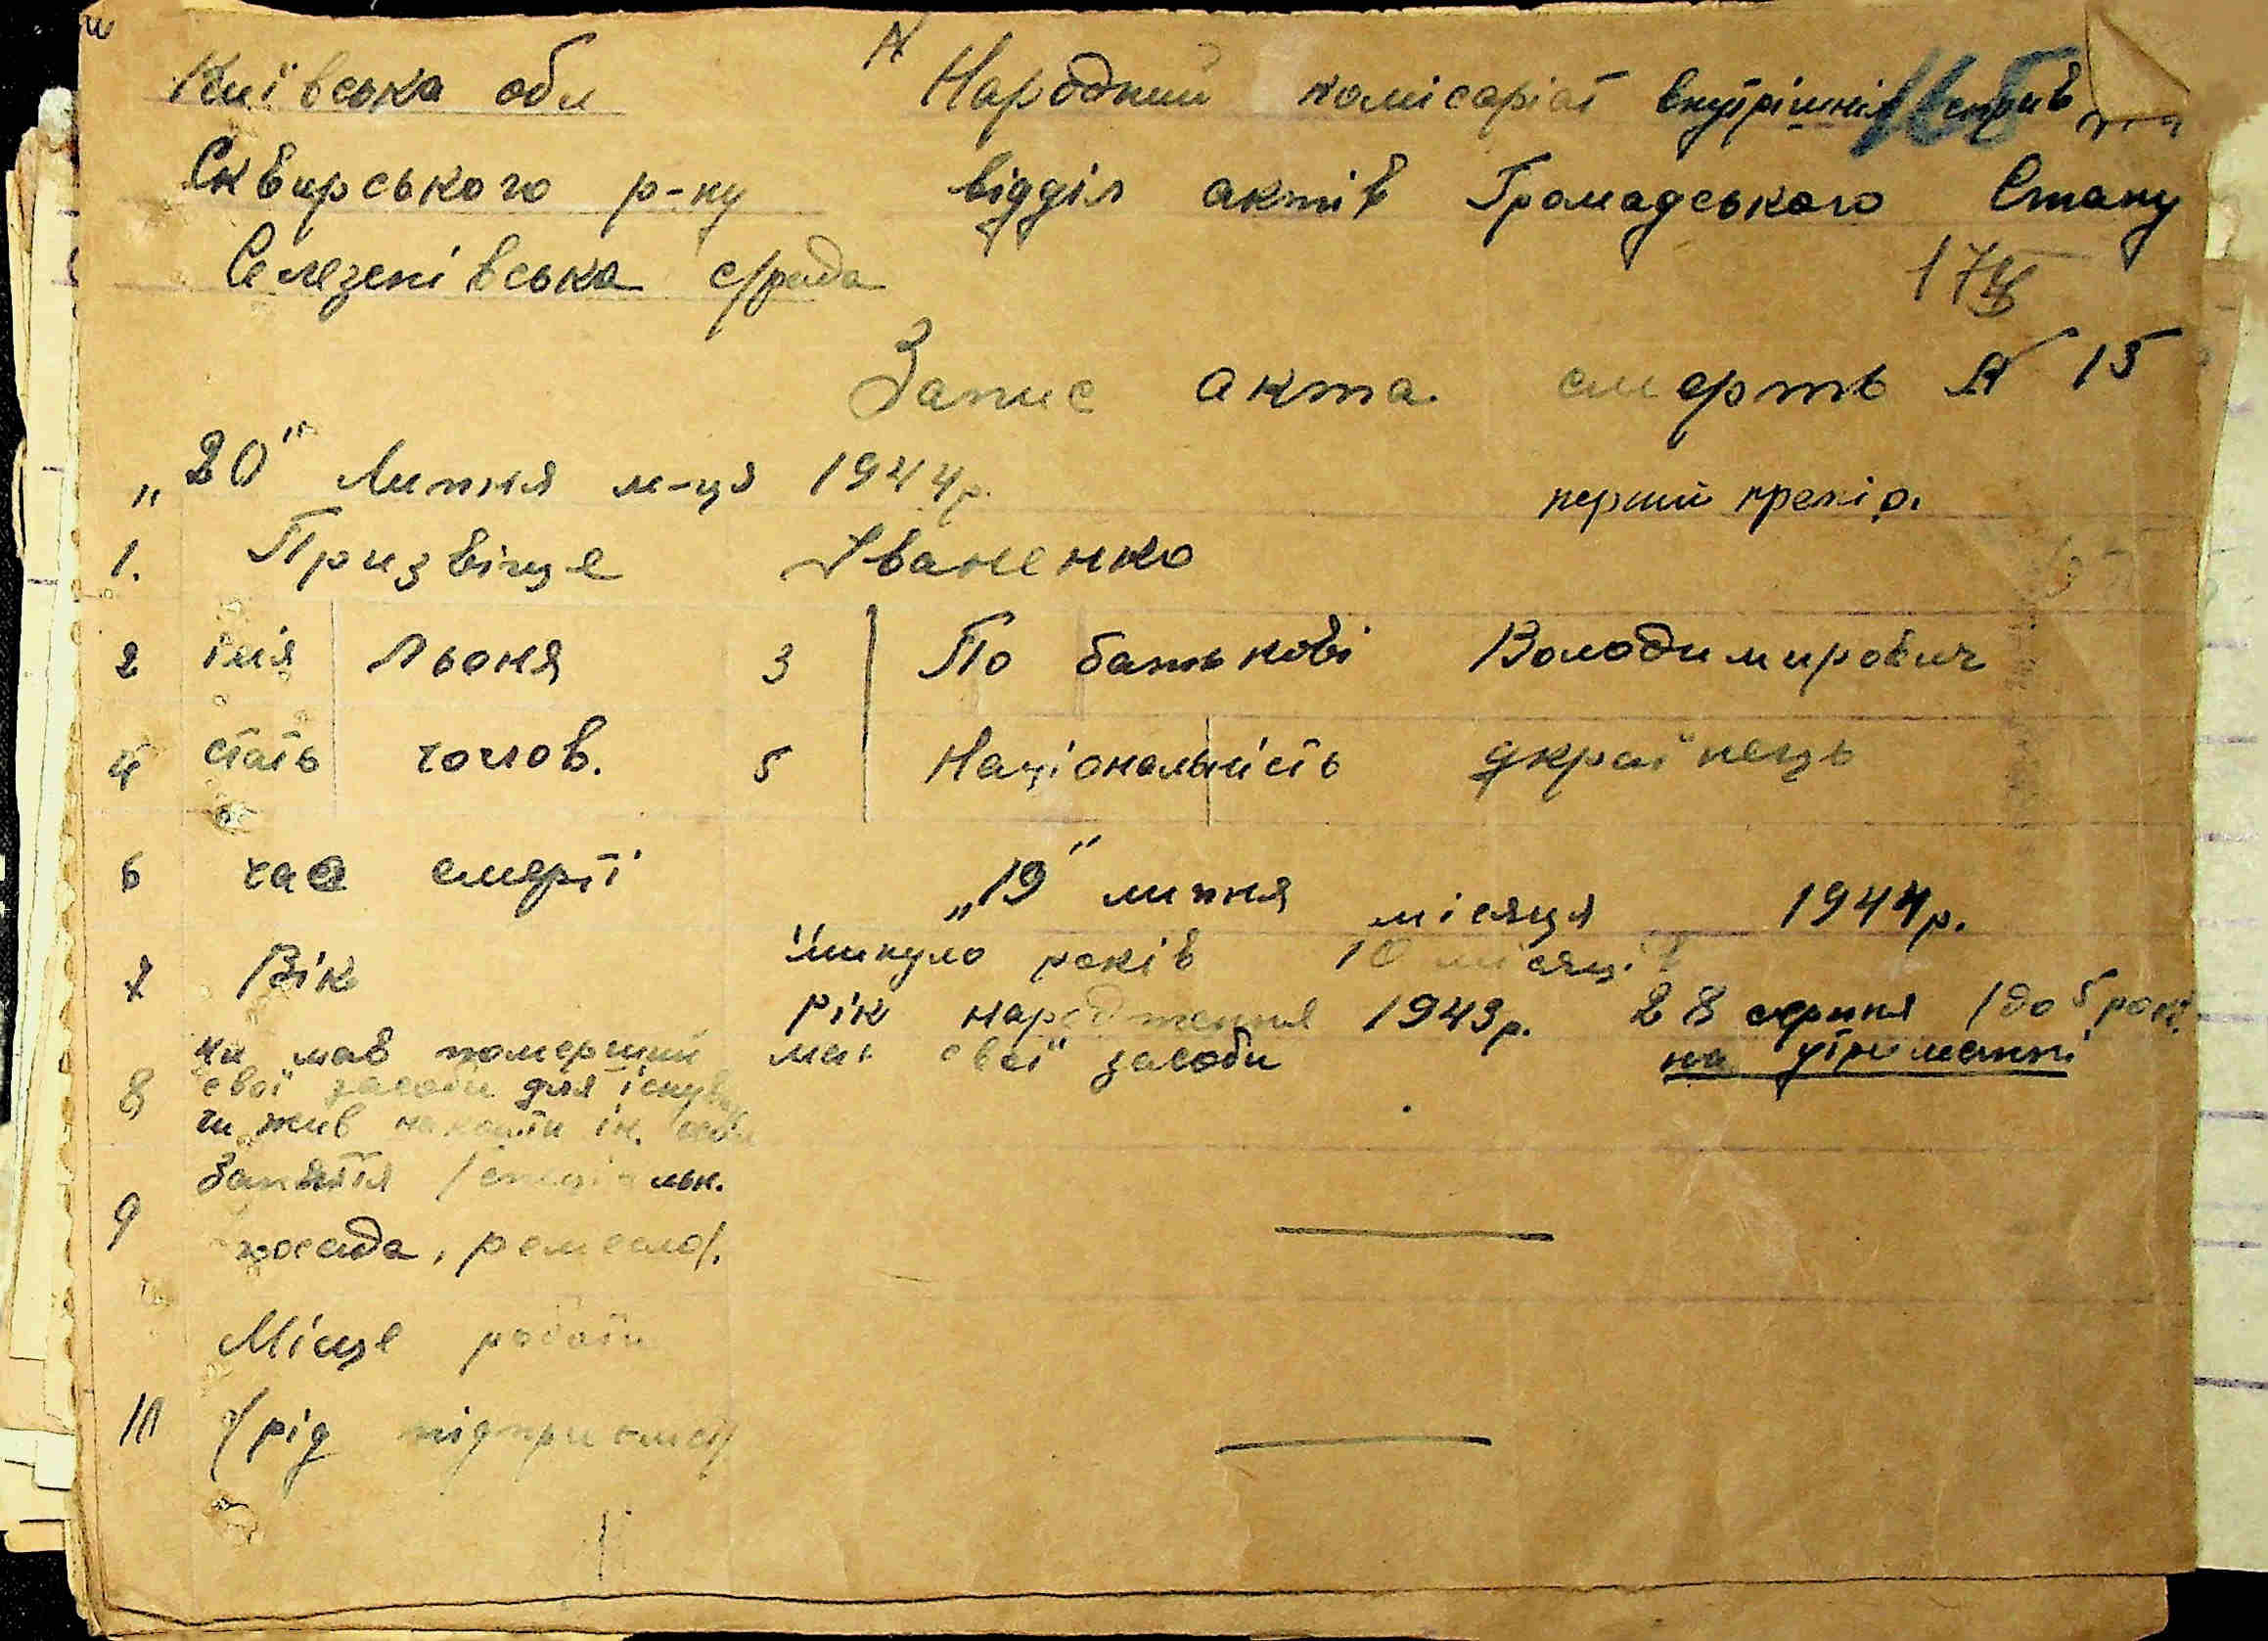 Київська обл
Народний комісаріат внутрішніх справ
Сквирського р-ну
відділ актів Громадського Стану
Селезенівська с/рада
Запис акта смерть № 15
„20" Липня м-ця 1944р.
перший примір.
1. Призвіще Іваненко
2 імія Льоня 3 По батькові Володимирович
4 стать чолов. 5 Національність українець
6 час смерті „19" липня місяця 1944р.
7 Вік минуло років 10 місяців
рік народження 1943р. 28 серпня /до 5 рокі.
8 чи мав померший свої засоби для існув.
чи жив на кошти ін.
мав свої засоби на утриманні
9 Заняття /спеціальн.
посада, ремесло/.
Місце роботи
10 /рід підприємст/